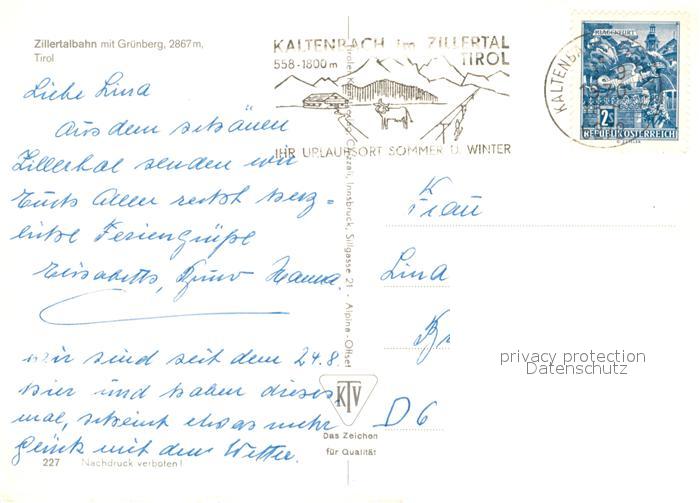 Zillertalbahn mit Grünberg, 2867 m,
Tirol
KALTENBACH im ZILLERTAL
558-1800 m TIROL
IHR URLAUBSORT SOMMER U. WINTER
KALTENBA
KLAGENFURT
2
REPUBLIK ÖSTERREICH
Liebe Lina
Aus dem schönen
Zillertal senden wir
Euch Allen recht herz-
liche Feriengrüße
Elisabeth, Hanna.
wir sind seit dem 24.8.
hier und haben dieses
mal, scheint etwas mehr
Glück mit dem Wetter.
Frau
Lina
D 6
privacy protection
Datenschutz
Innsbruck, Sillgasse 21 - Alpina-Offset
KTV
Das Zeichen
für Qualität
227 Nachdruck verboten!